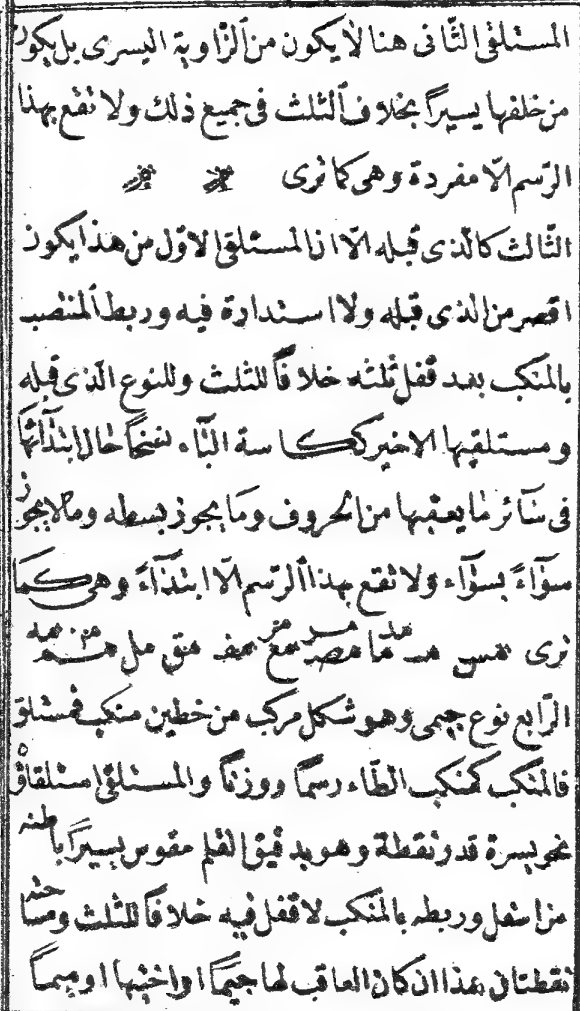 المستلقى الثّانى هنا لا يكون من الزّاوية اليسرى بل يكون
من خلفها يسيرًا بخلاف الثلث فى جميع ذلك ولا تقع بهذا
الرّسم الّا مفردة وهى كما ترى
الثّالث كالّذى قبله الّا ان المستلقى الاوّل من هذا يكون
اقصر من الذى قبله ولا استدارة فيه وربط المنتصب
بالمنكب بعد قفل ثلثه خلافًا للثلث وللنوع الّذى قبله
ومستلقيها الاخير ككاسة البّاء نفخًا حال ابتدآئها
فى سآئر ما يعقبها من الحروف وما يجوز بسطه وما لا يجوز
سوآءً بسوآء ولا تقع بهذا الرّسم الّا ابتدآءً وهى كما
ترى همس هد ما مصر مع هف متى مل هم
الرّابع نوع جيمى وهو شكل مركب من خطين منكب فمستلق
فالمنكب كمنكب الطّاء رسمًا ووزنًا والمستلقى استلقاؤه
نحو يسرة قدر نقطة وهو بدقيق القلم مقوس يسيرًا باطنه
من اسفل وربطه بالمنكب لا قفل فيه خلافًا للثلث ومساحته
نقطتان هذا ان كان العاقب لها جيمًا او اختيها او ميمًا